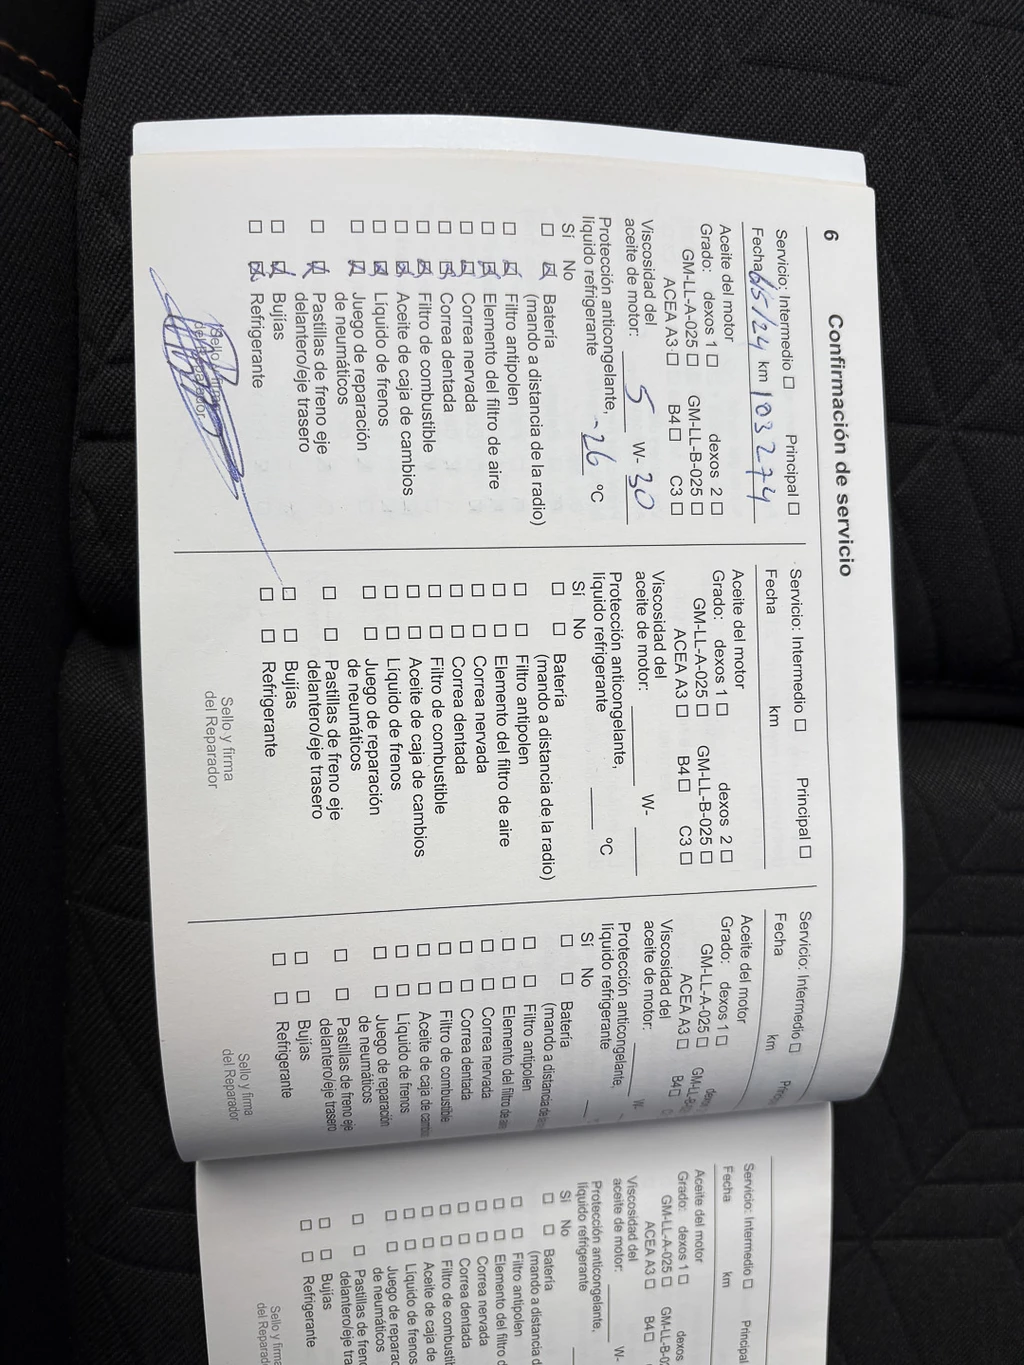 6 Confirmación de servicio
Servicio: Intermedio ☐ Principal ☐
Fecha 6/5/24 km 103274
Aceite del motor
Grado: dexos 1 ☐ dexos 2 ☐
GM-LL-A-025 ☐ GM-LL-B-025 ☐
ACEA A3 ☐ B4 ☐ C3 ☐
Viscosidad del
aceite de motor: 5 W- 30
Protección anticongelante,
líquido refrigerante -26 °C
Sí No
☐ ☒ Batería
(mando a distancia de la radio)
☐ ☒ Filtro antipolen
☐ ☒ Elemento del filtro de aire
☐ ☒ Correa nervada
☐ ☒ Correa dentada
☐ ☒ Filtro de combustible
☐ ☒ Aceite de caja de cambios
☐ ☒ Líquido de frenos
☐ ☒ Juego de reparación
de neumáticos
☐ ☒ Pastillas de freno eje
delantero/eje trasero
☐ ☒ Bujías
☐ ☒ Refrigerante
Sello y firma
del Reparador
Servicio: Intermedio ☐ Principal ☐
Fecha km
Aceite del motor
Grado: dexos 1 ☐ dexos 2 ☐
GM-LL-A-025 ☐ GM-LL-B-025 ☐
ACEA A3 ☐ B4 ☐ C3 ☐
Viscosidad del
aceite de motor: W-
Protección anticongelante,
líquido refrigerante °C
Sí No
☐ ☐ Batería
(mando a distancia de la radio)
☐ ☐ Filtro antipolen
☐ ☐ Elemento del filtro de aire
☐ ☐ Correa nervada
☐ ☐ Correa dentada
☐ ☐ Filtro de combustible
☐ ☐ Aceite de caja de cambios
☐ ☐ Líquido de frenos
☐ ☐ Juego de reparación
de neumáticos
☐ ☐ Pastillas de freno eje
delantero/eje trasero
☐ ☐ Bujías
☐ ☐ Refrigerante
Sello y firma
del Reparador
Servicio: Intermedio ☐
Fecha km
Aceite del motor
Grado: dexos 1 ☐
GM-LL-A-025 ☐
ACEA A3 ☐ B4 ☐
Viscosidad del
aceite de motor: W-
Protección anticongelante,
líquido refrigerante
Sí No
☐ ☐ Batería
(mando a distancia de
☐ ☐ Filtro antipolen
☐ ☐ Elemento del filtro de aire
☐ ☐ Correa nervada
☐ ☐ Correa dentada
☐ ☐ Filtro de combustible
☐ ☐ Aceite de caja de cambios
☐ ☐ Líquido de frenos
☐ ☐ Juego de reparación
de neumáticos
☐ ☐ Pastillas de freno eje
delantero/eje trasero
☐ ☐ Bujías
☐ ☐ Refrigerante
Sello y firma
del Reparador
Servicio: Intermedio ☐ Principal
Fecha km
Aceite del motor
Grado: dexos 1 ☐ dexos
GM-LL-A-025 ☐
ACEA A3 ☐ B4 ☐
Viscosidad del
aceite de motor: W-
Protección anticongelante,
líquido refrigerante
Sí No
☐ ☐ Batería
(mando a distancia
☐ ☐ Filtro antipolen
☐ ☐ Elemento del filtro
☐ ☐ Correa nervada
☐ ☐ Correa dentada
☐ ☐ Filtro de
☐ ☐ Aceite de caja de
☐ ☐ Líquido de frenos
☐ ☐ Juego de
de neumáticos
☐ ☐ Pastillas de
☐ ☐ Bujías
☐ ☐ Refrigerante
Sello y firma